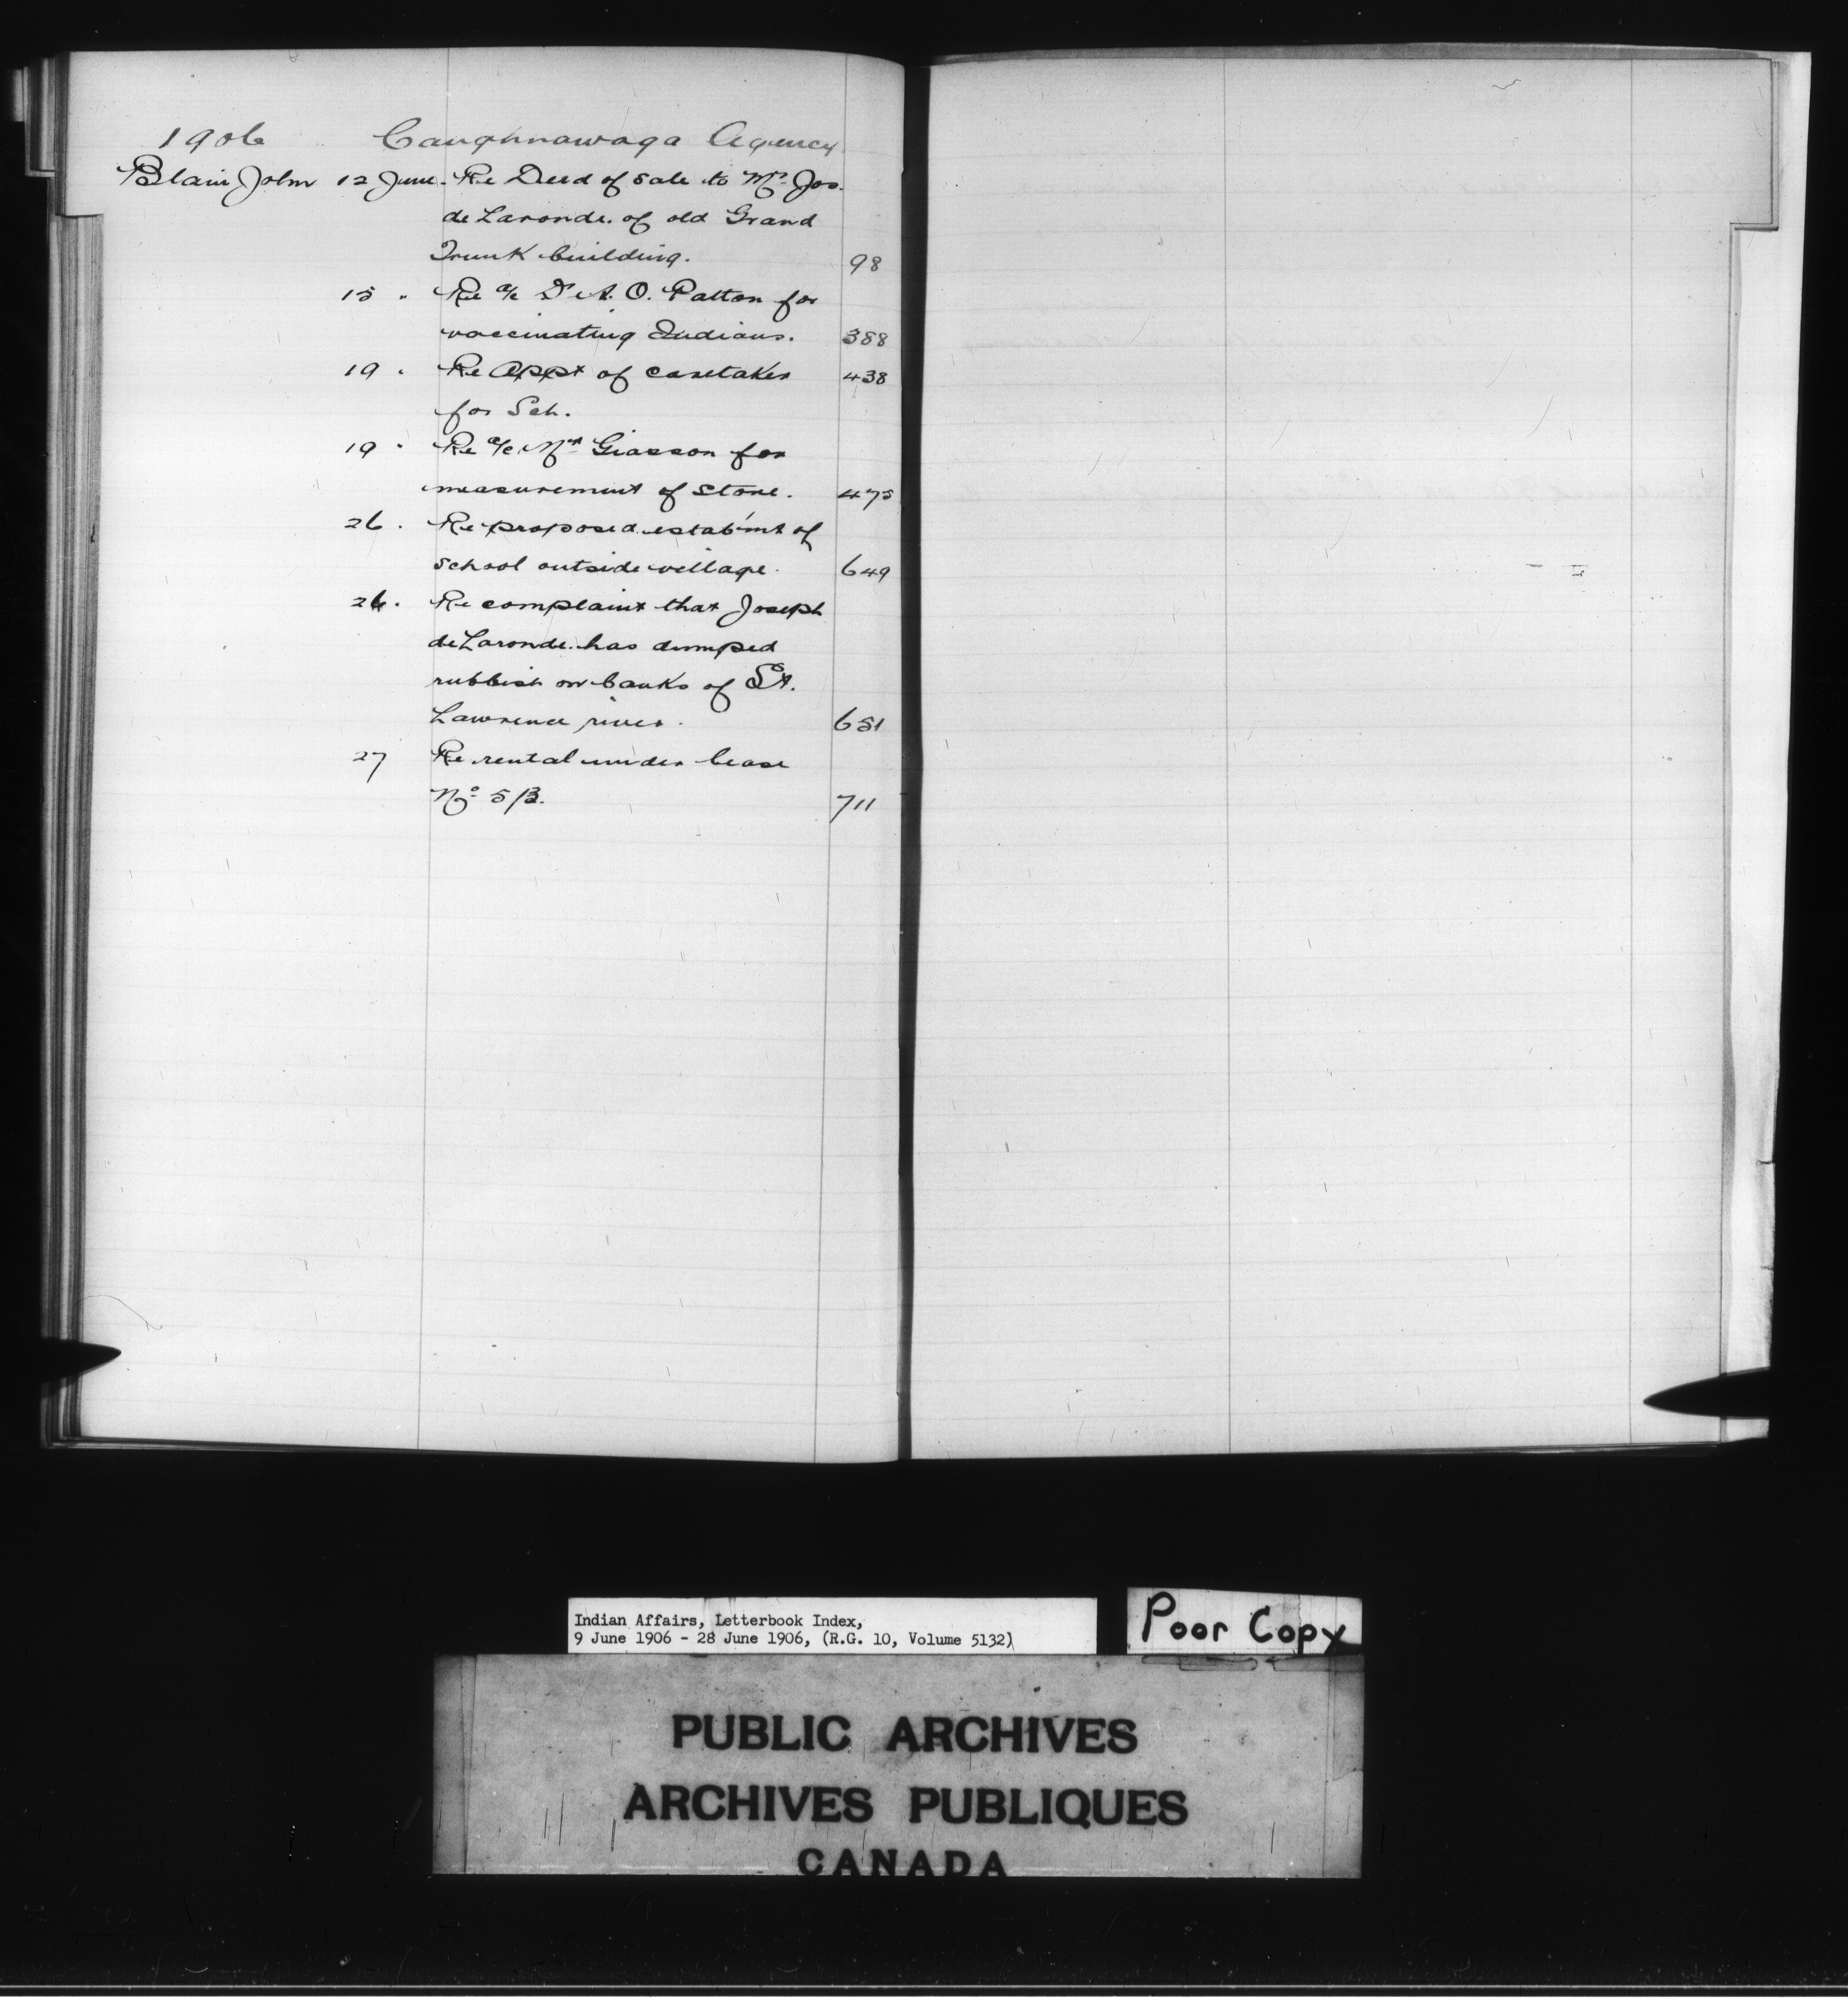 1906 Caughnawaga Agency
Blain John 12 June. Re Deed of Sale to Mr. Jos.
de Laronde. of old Grand
Trunk building. 98
15 " Re a/c Dr A. O. Patton for
vaccinating Indians. 388
19 " Re Appt of caretaker 438
for Sch.
19 " Re a/c Mr Giasson for
measurement of stone. 475
26 . Re proposed estab'mt of
school outside village. 649
26 . Re complaint that Joseph
de Laronde. has dumped
rubbish on banks of St.
Lawrence river. 651
27 Re rental under lease
No 5/B. 711
Indian Affairs, Letterbook Index,
9 June 1906 - 28 June 1906, (R.G. 10, Volume 5132)
Poor Copy
PUBLIC ARCHIVES
ARCHIVES PUBLIQUES
CANADA